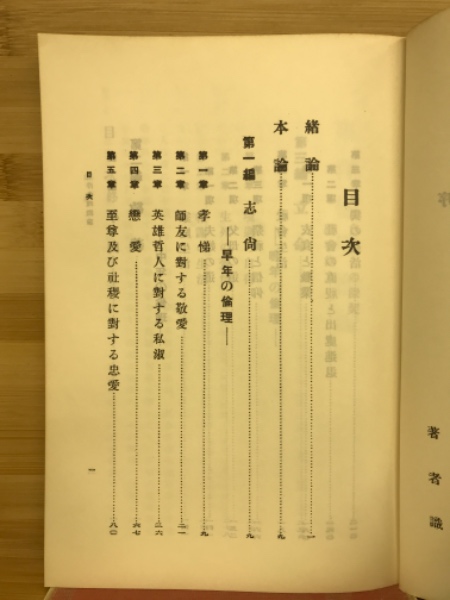 著者識
目次
緒論……一
本論……九
第一編 志尙……九
―早年の倫理―
第一章 孝悌……九
第二章 師友に對する敬愛……二一
第三章 英雄哲人に對する私淑……二六
第四章 戀愛……六七
第五章 至尊及び社稷に對する忠愛……八〇
目次
一